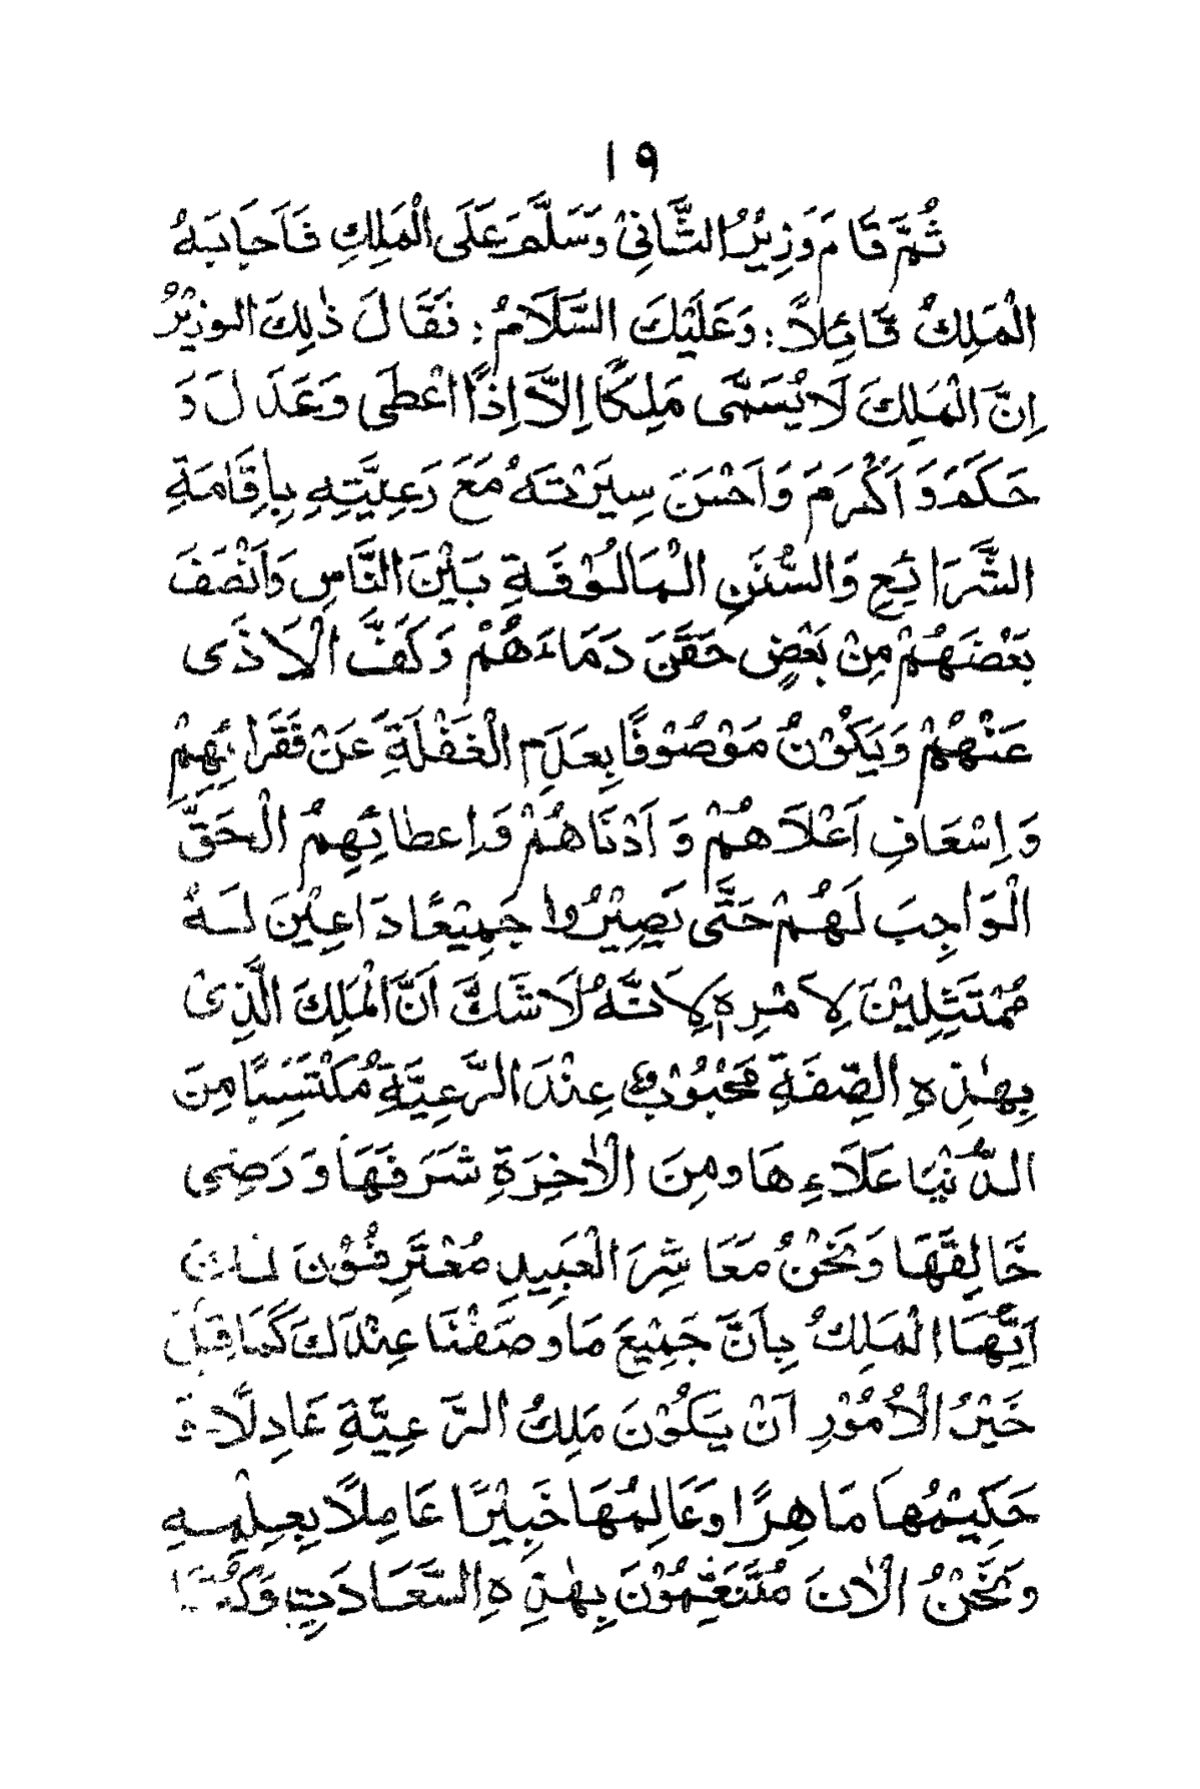 ١٩
ثُمَّ قَامَ وَزِيْرُ الثَّانِيْ وَسَلَّمَ عَلَى الْمَلِكِ فَاَجَابَهُ
الْمَلِكُ قَائِلاً: وَعَلَيْكَ السَّلَامُ: فَقَالَ ذٰلِكَ الوزِيْرُ
اِنَّ الْمَلِكَ لَايُسَمَّى مَلِكًا اِلَّا اِذَا اَعْطَى وَعَدَلَ وَ
حَكَمَ وَاَكْرَمَ وَاَحْسَنَ سِيَرْتَهُ مَعَ رَعِيَّتِهِ بِاِقَامَةِ
الشَّرَائِعِ وَالسُّنَنِ الْمَالُوْفَةِ بَيْنَ النَّاسِ وَاَنْصَفَ
بَعْضَهُمْ مِنْ بَعْضٍ حَقَنَ دَمَاءَهُمْ وَكَفَّ الْاَذَى
عَنْهُمْ وَيَكُوْنُ مَوْصُوْفًا بِعَدَمِ الْغَفْلَةِ عَنْ فَقَرَائِهِمْ
وَاِسْعَافِ اَعْلَاهُمْ وَاَدْنَاهُمْ وَاِعطَائِهِمُ الْحَقَّ
الْوَاجِبَ لَهُمْ حَتَّى يَصِيْرُوا جَمِيْعًا دَاعِيْنَ لَهُ
مُمْتَثِلِيْنَ لِاَمْرِهِ لِاَنَّهُ لَاشَكَّ اَنَّ الْمَلِكَ الَّذِىْ
بِهٰذِهِ الصِّفَةِ مَحْبُوْبٌ عِنْدَ الرَّعِيَّةِ مُكْتَسِبًا مِنَ
الدُّنْيَا عَلَاءِهَا ومِنَ الْاٰخِرَةِ شَرَفَهَا وَرَضِى
خَالِقَهَا وَنَحْنُ مَعَاشِرَ الْعَبِيدِ مُعْتَرِفُوْنَ لَكَ
اَيُّهَا الْمَلِكُ بِاَنَّ جَمِيْعَ مَاوصَفْنَا عِنْدَكَ كَمَا قِيْلَ
خَيْرُ الْاُمُوْرِ اَنْ يَكُوْنَ مَلِكُ الرَّعِيَّةِ عَادِلًا وَ
حَكِيْمُهَا مَاهِرًا وَعَالِمُهَا خَبِيْرًا عَامِلًا بِعِلْمِهِ
وَنَحْنُ الْاٰنَ مُتَنَعِّمُوْنَ بِهٰذِهِ السَّعَادَتِ وَكُنَّا